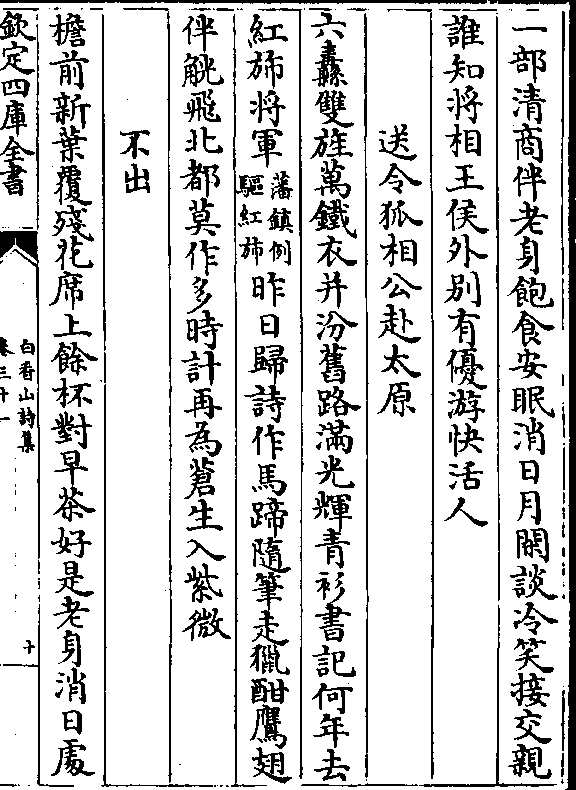 一部清商伴老身飽食安眠消日月閑談冷笑接交親
誰知將相王侯外别有優游快活人
送令狐相公赴太原
六纛雙旌萬鐵衣并汾舊路滿光輝青衫書記何年去
紅斾將軍
藩鎮例
驅紅斾
昨日歸詩作馬蹄隨筆走獵酣鷹翅
伴觥飛北都莫作多時計再為蒼生入紫微
不出
檐前新葉覆殘花席上餘杯對早茶好是老身消日處
欽定四庫全書
白香山詩集
卷三十一
十